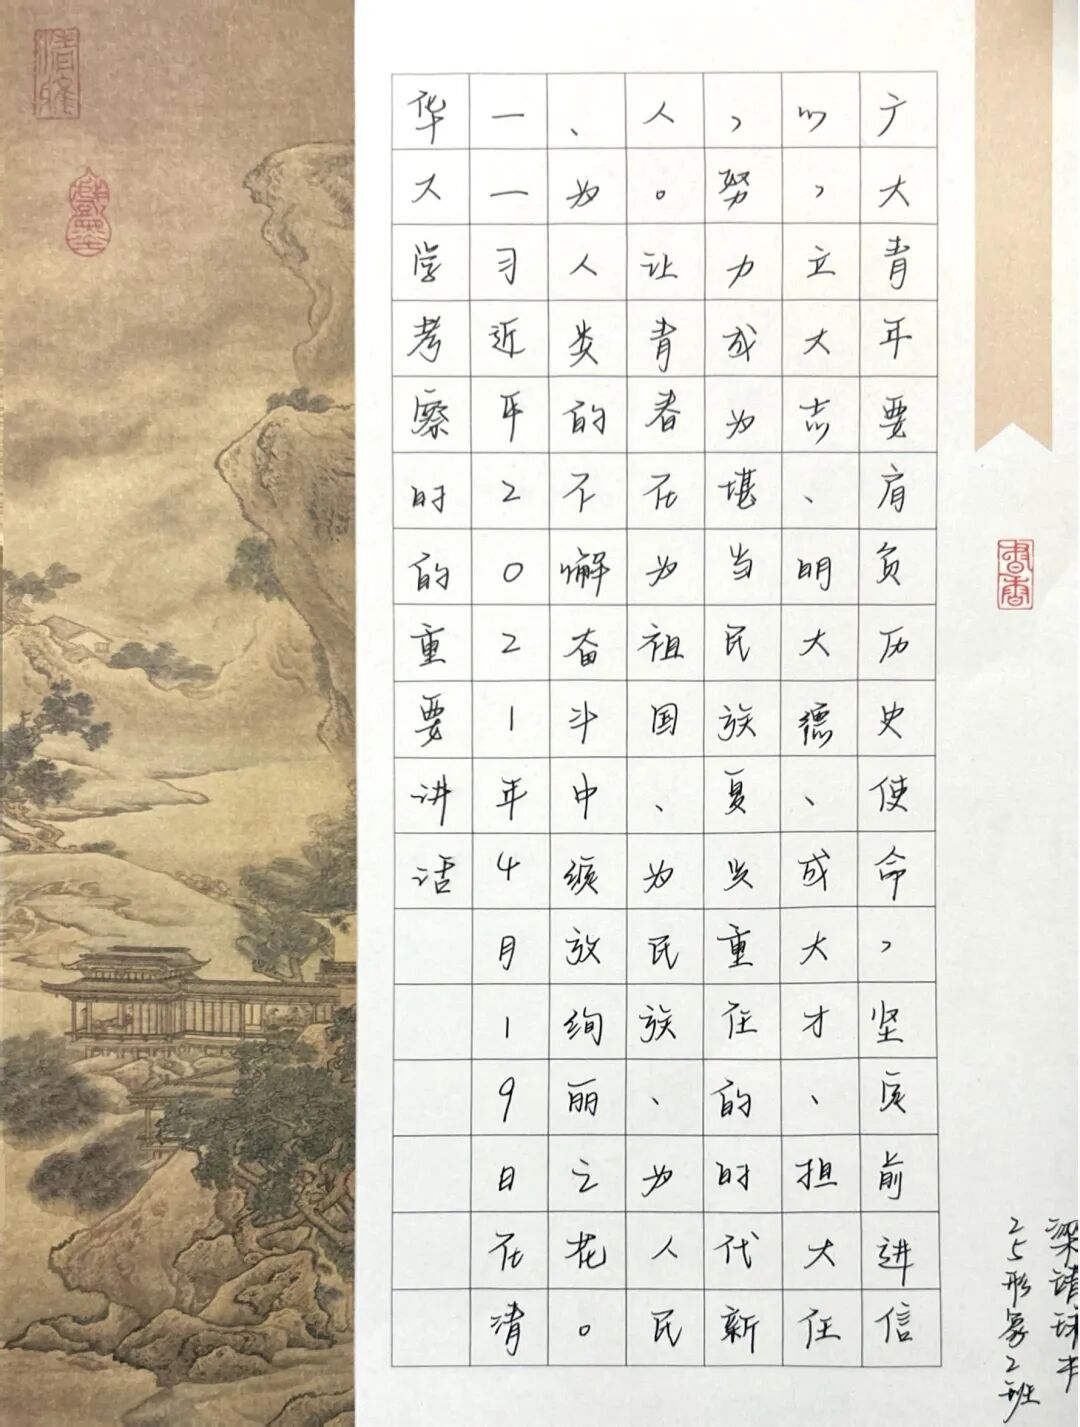 广大青年要肩负历史使命，坚定前进信
心，立大志、明大德、成大才、担大任
，努力成为堪当民族复兴重任的时代新
人。让青春在为祖国、为民族、为人民
、为人类的不懈奋斗中绽放绚丽之花。
——习近平2021年4月19日在清
华大学考察时的重要讲话
梁靖书
25形象2班
書香
清雅
戲墨